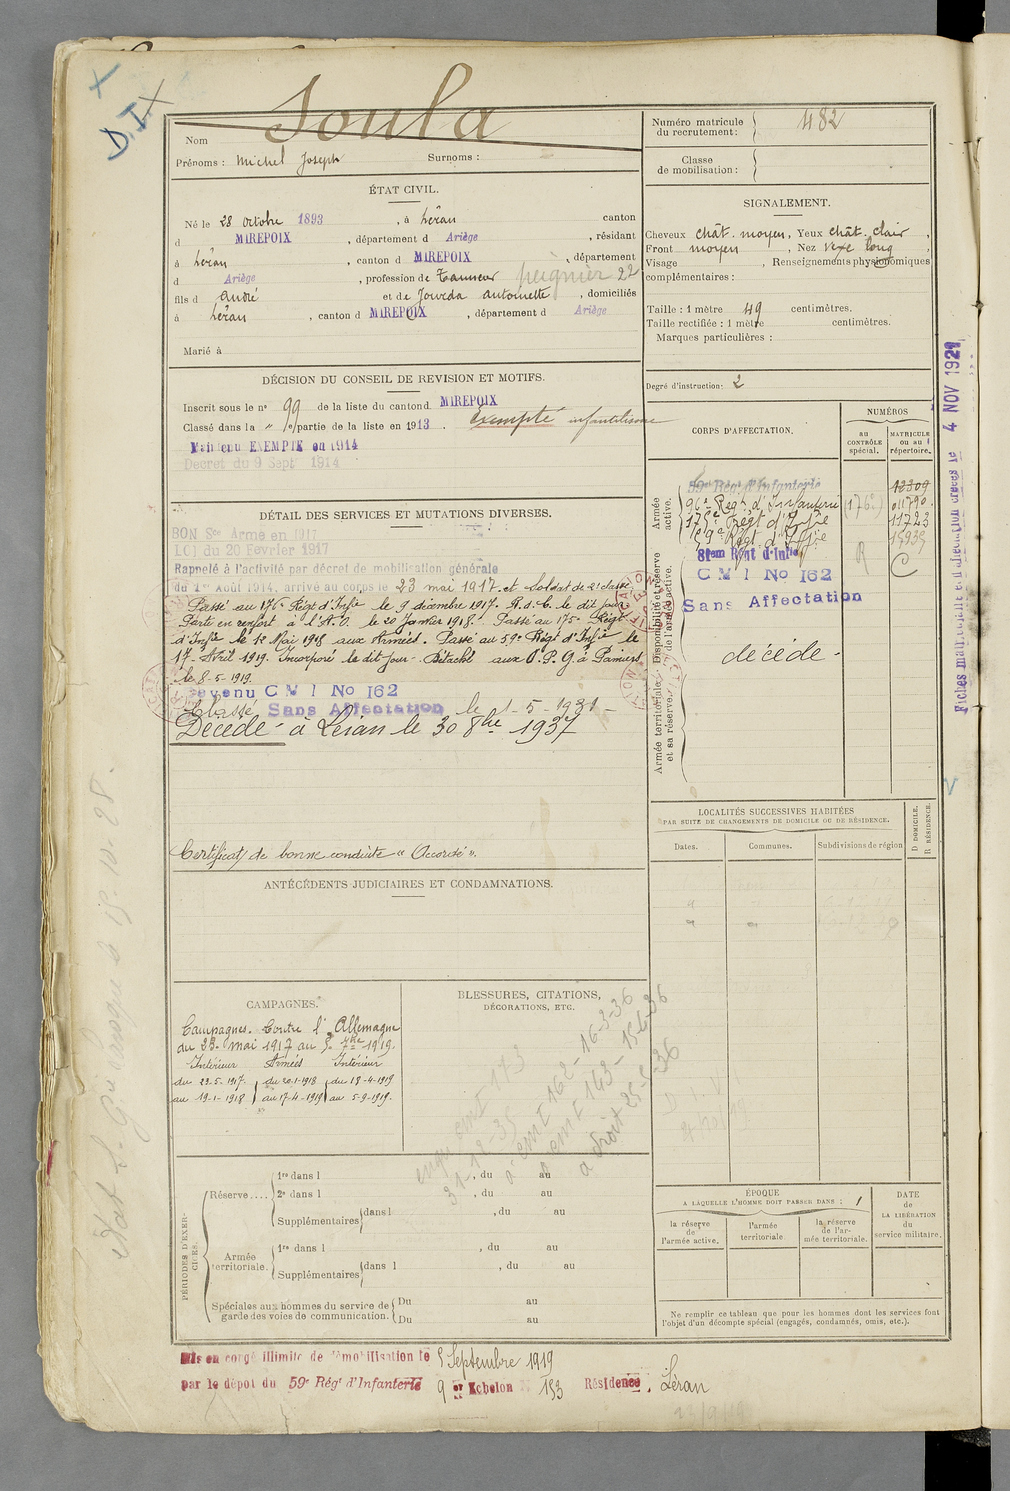 X
D.I X
Soula
Nom
Prénoms : Michel Joseph Surnoms :
Numéro matricule
du recrutement : 482
Classe
de mobilisation :
ÉTAT CIVIL.
Né le 28 Octobre 1893, à Léran canton
d MIREPOIX, département d Ariège, résidant
à Léran, canton d MIREPOIX, département
d Ariège, profession de Tanneur peignier 22
fils d André et de Jourda Antoinette, domiciliés
à Léran, canton d MIREPOIX, département d Ariège
Marié à
SIGNALEMENT.
Cheveux chât. moyen, Yeux chât. clair,
Front moyen, Nez vexe long
Visage , Renseignements physionomiques
complémentaires :
Taille : 1 mètre 49 centimètres.
Taille rectifiée : 1 mètre centimètres.
Marques particulières :
Degré d'instruction : 2
DÉCISION DU CONSEIL DE REVISION ET MOTIFS.
Inscrit sous le n° 99 de la liste du canton d MIREPOIX
Classé dans la " e partie de la liste en 1913. Exempté infantilisme
Maintenu EXEMPTE en 1914
Decret du 9 Sept 1914
CORPS D'AFFECTATION.
NUMÉROS
au
CONTRÔLE
spécial.
MATRICULE
ou au
répertoire.
Armée
active.
59e Régt d'Infanterie 12309
96e Régt d'Infanterie (176e) 01790
175e Régt d'Infie 11723
59e Régt d'Infie 15935
81em Rgnt d'Infie R C
C M I No 162
Sans Affectation
décédé.
Disponibilité et réserve
de l'armée active.
Armée territoriale
et sa réserve.
DÉTAIL DES SERVICES ET MUTATIONS DIVERSES.
BON Sce Armé en 1917
LOI du 20 Fevrier 1917
Rappelé à l'activité par décret de mobilisation générale
du 1er Août 1914, arrivé au corps le 23 mai 1917. et Soldat de 2e classe
Passé au 176e Régt d'Infie le 9 décembre 1917. A.d.C. le dit jour
Parti en renfort à l'A.O. le 20 Janvier 1918. Passé au 175e Régt
d'Infie le 12 Mai 1918 aux Armées. Passé au 59e Régt d'Infie le
17 Avril 1919. Incorporé le dit jour. Détaché aux O.P.G. à Pamiers
le 8-5-1919.
Devenu C M I No 162
Classé Sans Affectation le 1-5-1931-
Décédé - à Léran le 30 8bre 1937
Certificat de bonne conduite « Accordé ».
Fiches matriculaire et d'affectation créées le 4 NOV 1921
ANTÉCÉDENTS JUDICIAIRES ET CONDAMNATIONS.
LOCALITÉS SUCCESSIVES HABITÉES
PAR SUITE DE CHANGEMENTS DE DOMICILE OU DE RÉSIDENCE.
Dates. Communes. Subdivisions de région
D DOMICILE.
R RÉSIDENCE.
CAMPAGNES.
Campagnes. Contre l'Allemagne
du 23 mai 1917 au 5 7bre 1919.
Intérieur Armées Intérieur
du 23-5-1917. du 20-1-1918 du 18-4-1919
au 19-1-1918 au 17-4-1919 au 5-9-1919.
BLESSURES, CITATIONS,
DÉCORATIONS, ETC.
CM I 173
31-12-35
à CM I 162 - 16-3-36
CM I 143 -
à droit
PÉRIODES D'EXERCICES.
Réserve....
1re dans l , du au
2e dans l , du au
Supplémentaires dans l , du au
Armée
territoriale.
1re dans l , du au
Supplémentaires dans l , du au
Spéciales aux hommes du service de
garde des voies de communication.
Du au
Du au
ÉPOQUE
A LAQUELLE L'HOMME DOIT PASSER DANS :
la réserve
de
l'armée active.
l'armée
territoriale
la réserve
de l'ar-
mée territoriale.
DATE
de
LA LIBÉRATION
du
service militaire.
Ne remplir ce tableau que pour les hommes dont les services font
l'objet d'un décompte spécial (engagés, condamnés, omis, etc.).
Mis en congé illimité de démobilisation le 5 Septembre 1919
par le dépôt du 59e Régt d'Infanterie 9 er Echelon N° 153 Résidence, Léran